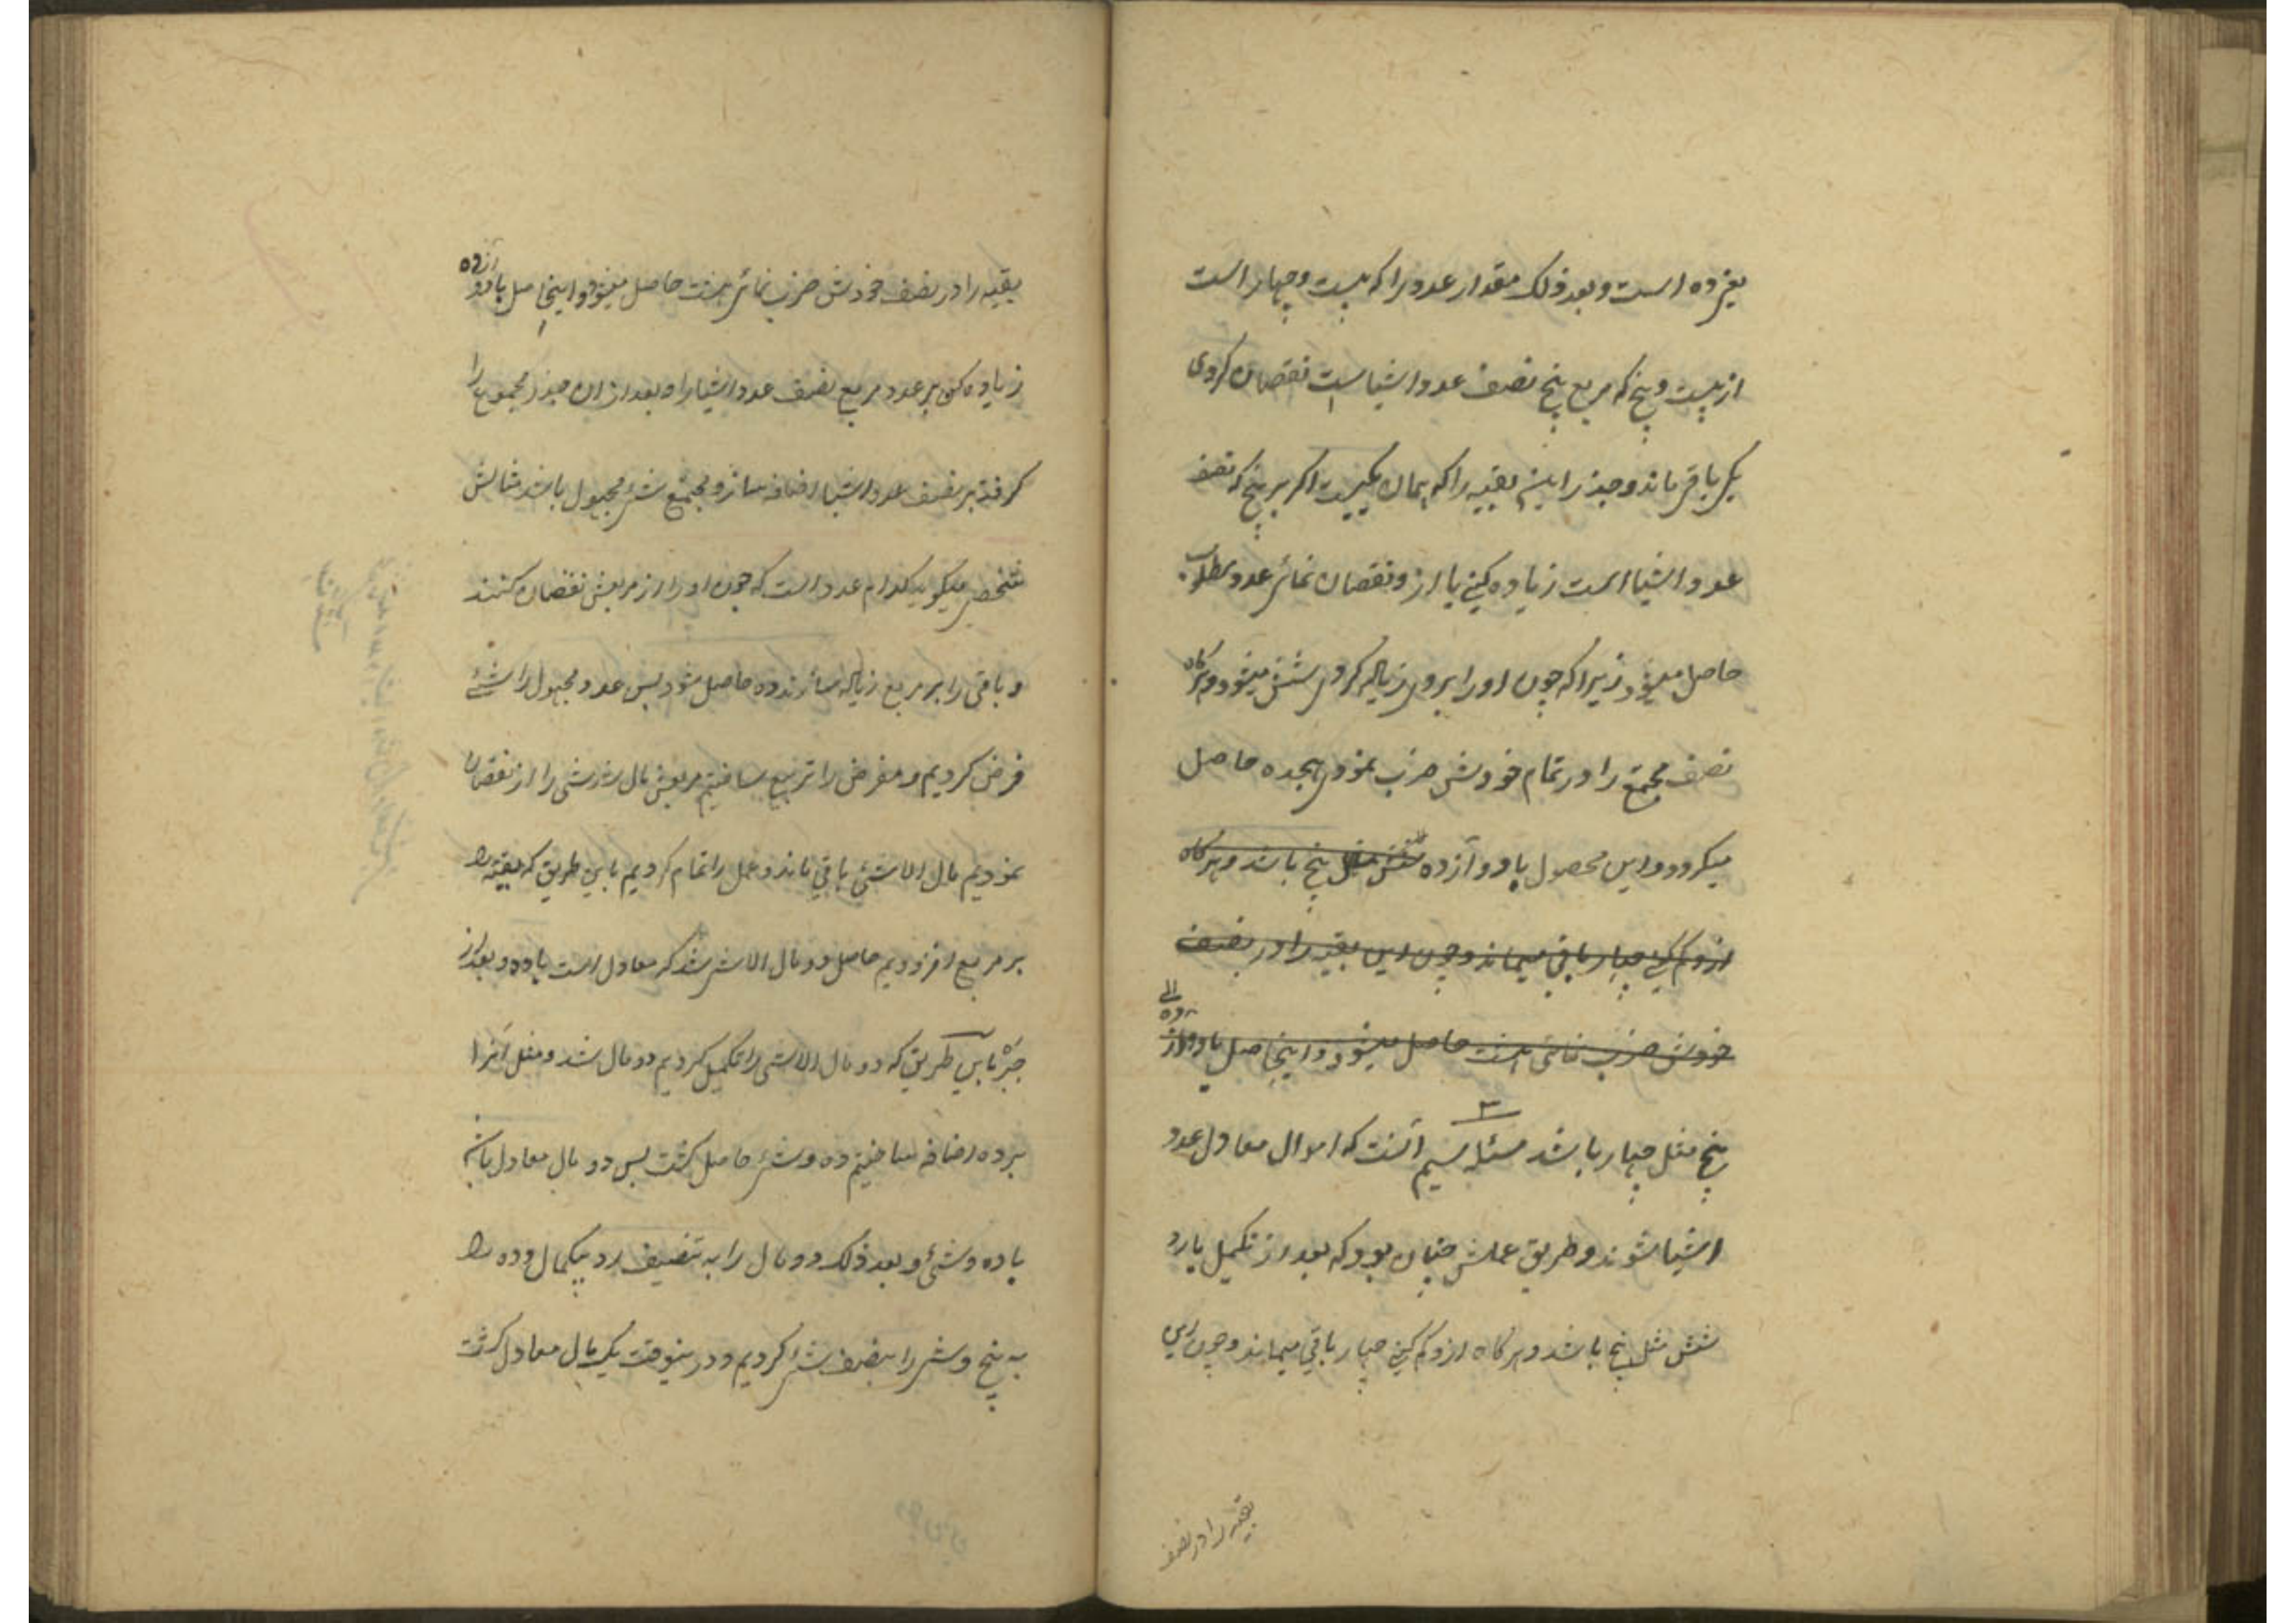 بغیر ده است و بعد ذلک مقدار عدد را که بیست و چهار است
از بیست و پنج که مربع پنج نصف عدد اشیا است نقصان کردی
یک باقی ماند و جذر این بقیه را که همان یکیست اگر بر پنج که نصف
عدد اشیا است زیاده کنی یا ازو نقصان نمائی عدد مطلوب
حاصل میشود زیرا که چون او را برو زیاده کردی شش میشود و هرگاه
نصف مجتمع را در تمام خودش ضرب نمودی هجده حاصل
میکردد و این محصول با دوازده شش مثل پنج باشد و هرگاه
ازو کم کنی چهار باقی میماند و چون این بقیه را در نصف
خودش ضرب نمائی هشت حاصل میشود و اینحاصل با دوازده
پنج مثل چهار باشد مسئله سیم آنست که اموال معادل عدد
اشیا شوند و طریق عملش چنان بود که بعد از تکمیل یا رد
شش مثل پنج باشد و هرگاه ازو کم کنی چهار باقی میماند و چون این
بقیه را در نصف
بقیه را در نصف خودش ضرب نمائی هشت حاصل میشود و اینحاصل با دوازده
زیاده کنی بر عدد مربع نصف عدد اشیا را و بعد از ان جذر مجموع را
کرفته بر نصف عدد اشیا اضافه سازو مجتمع شئ مجهول باشد مثالش
شخصی میکوید کدام عدد است که چون او را از مربعش نقصان کنند
و باقی را بر مربع زیاده سازند ده حاصل شود پس عدد مجهول را شئ
فرض کردیم و مفروض را تربیع ساختیم مربعش مال شد شی را از نقصان
نمودیم مال الا شئ باقی ماند و عمل را تمام کردیم باین طریق که بقیه را
بر مربع افزودیم حاصل دو مال الا شی شد که معادل است با ده و بعد از
جبر باین طریق که دو مال الا شی را تکمیل کردیم دو مال شد و مثل آنرا
بر ده اضافه ساختیم ده و شئ حاصل کشت پس دو مال معادل باشد
با ده و شئ و بعد ذلک دو مال را به تنصیف رد بیکمال و ده را
به پنج و شی را بنصف شئ کردیم و درینوقت یک مال معادل کشت